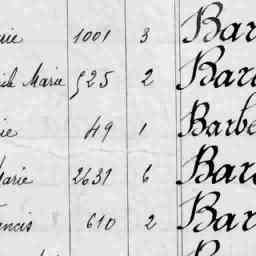 rie 1001 3 Bar
cile Marie 525 2 Bar
ie 49 1 Barbe
Marie 2631 6 Bar
rancis 610 2 Bar